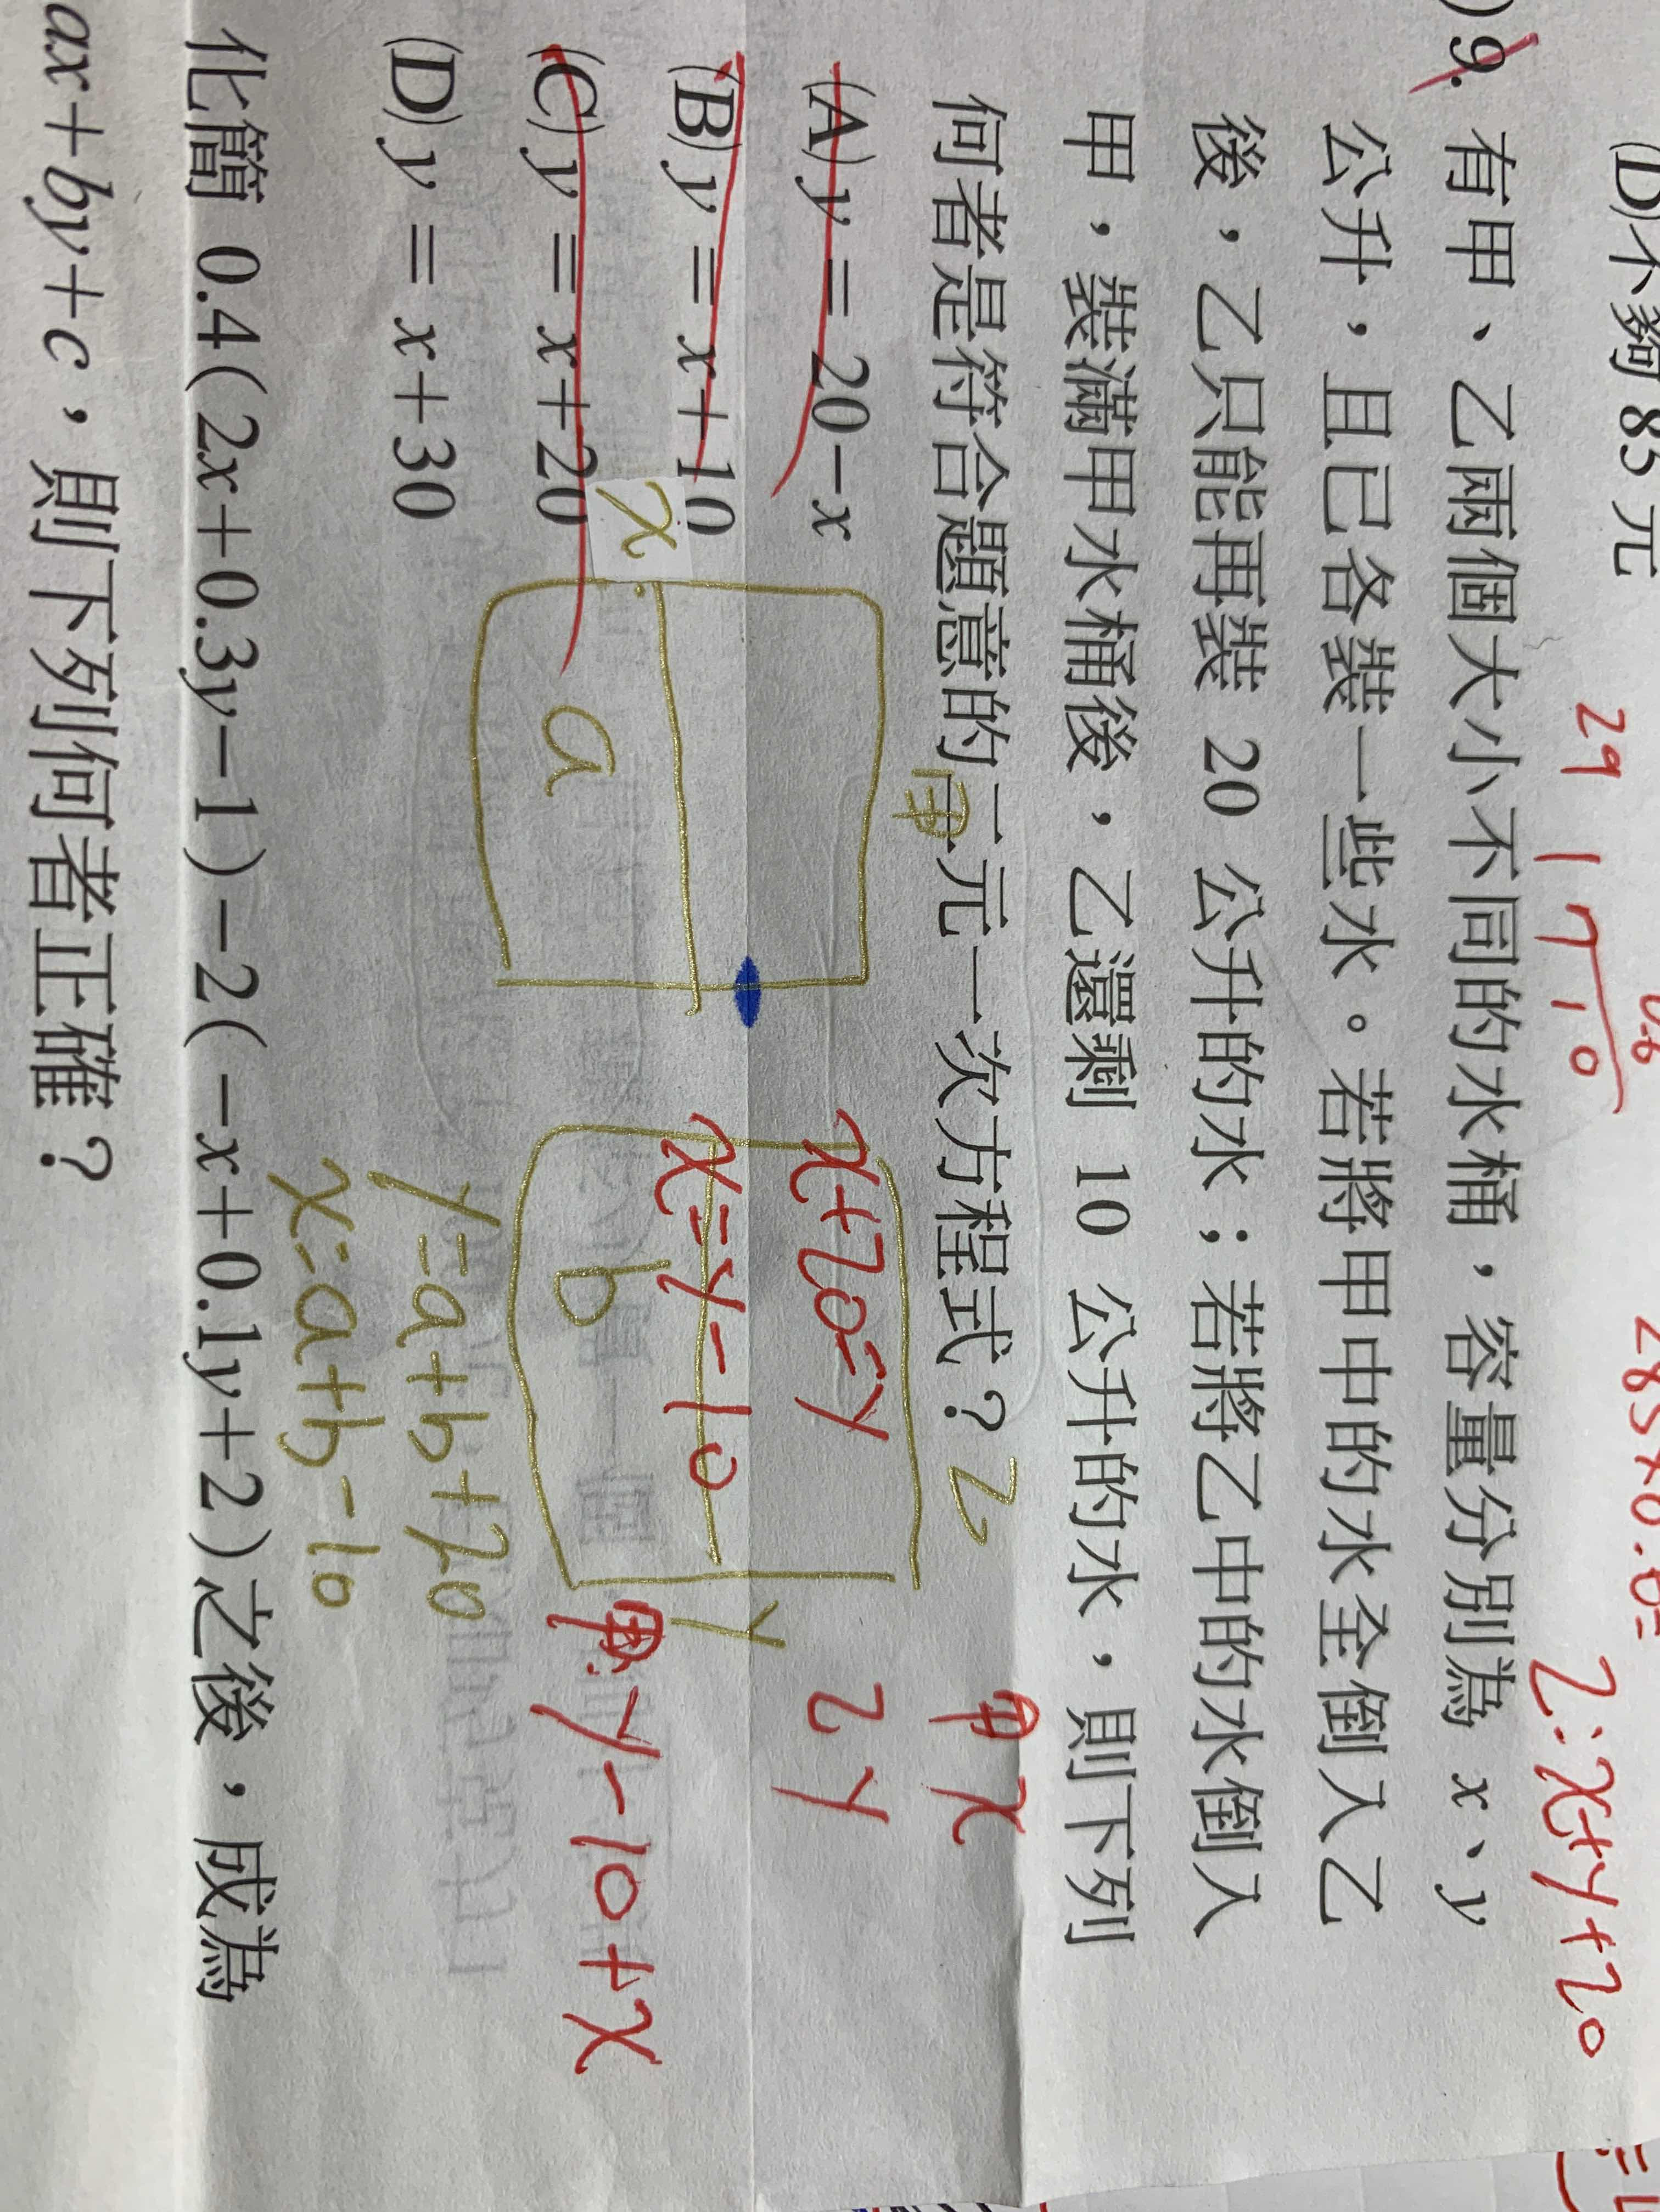 (D)不夠 85 元
285×0.6=
29
)9. 有甲、乙兩個大小不同的水桶，容量分別為 x、y
公升，且已各裝一些水。若將甲中的水全倒入乙
後，乙只能再裝 20 公升的水；若將乙中的水倒入
甲，裝滿甲水桶後，乙還剩 10 公升的水，則下列
何者是符合題意的二元一次方程式？
(A) y = 20 − x
(B) y = x + 10
(C) y = x + 20
(D) y = x + 30
乙:x+y+20
甲 x
乙 y
甲:y-10+x
甲
乙
x
y
a
b
x+20=y
x=y-10
y=a+b+20
x=a+b-10
化簡 0.4 ( 2x + 0.3y − 1 ) − 2 ( − x + 0.1y + 2 ) 之後，成為
ax + by + c，則下列何者正確？